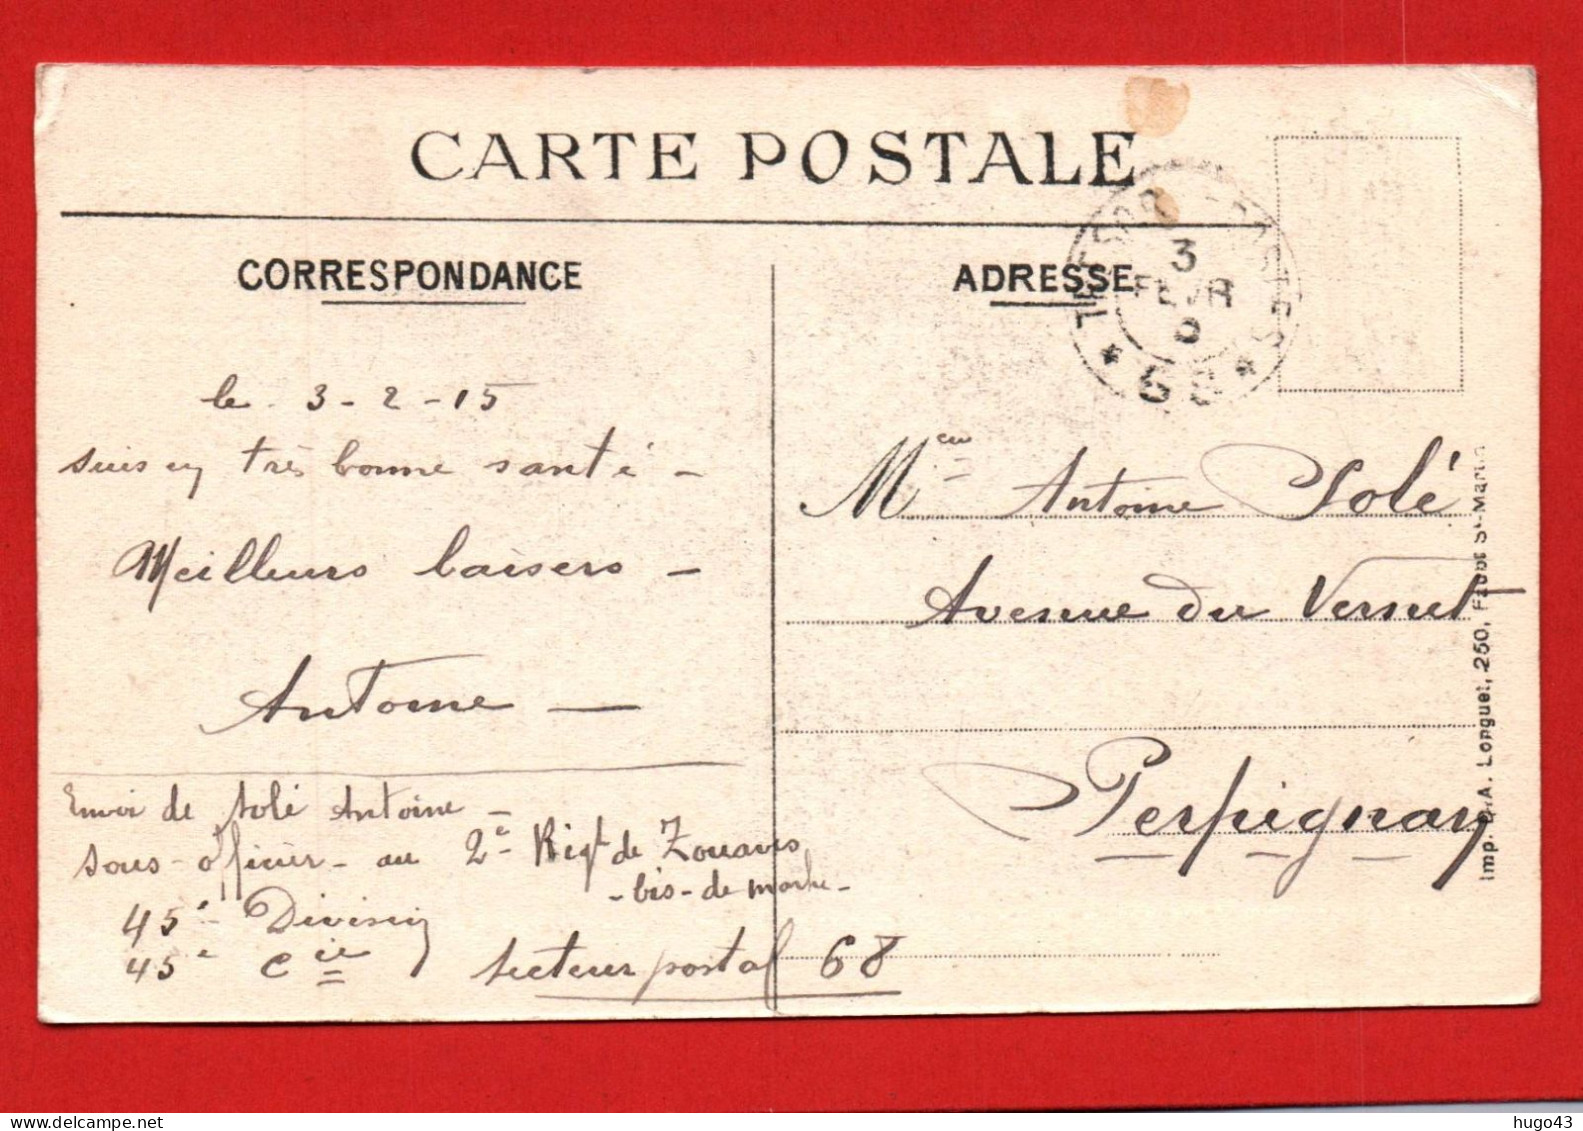 CARTE POSTALE
CORRESPONDANCE
le 3-2-15
suis en très bonne santé -
Meilleurs baisers -
Antoine -
Envoi de Solé Antoine -
sous-officier - au 2e Rigt de Zouaves
- bis - de marche -
45e Division
45e Cie Secteur postal 68
ADRESSE
TRESOR POSTES
3
FEVR
* *
Antoine Solé
Avenue du Vernet
Perpignan
Imp. A. Longuet, 250, Faubg St-Martin
hugo43